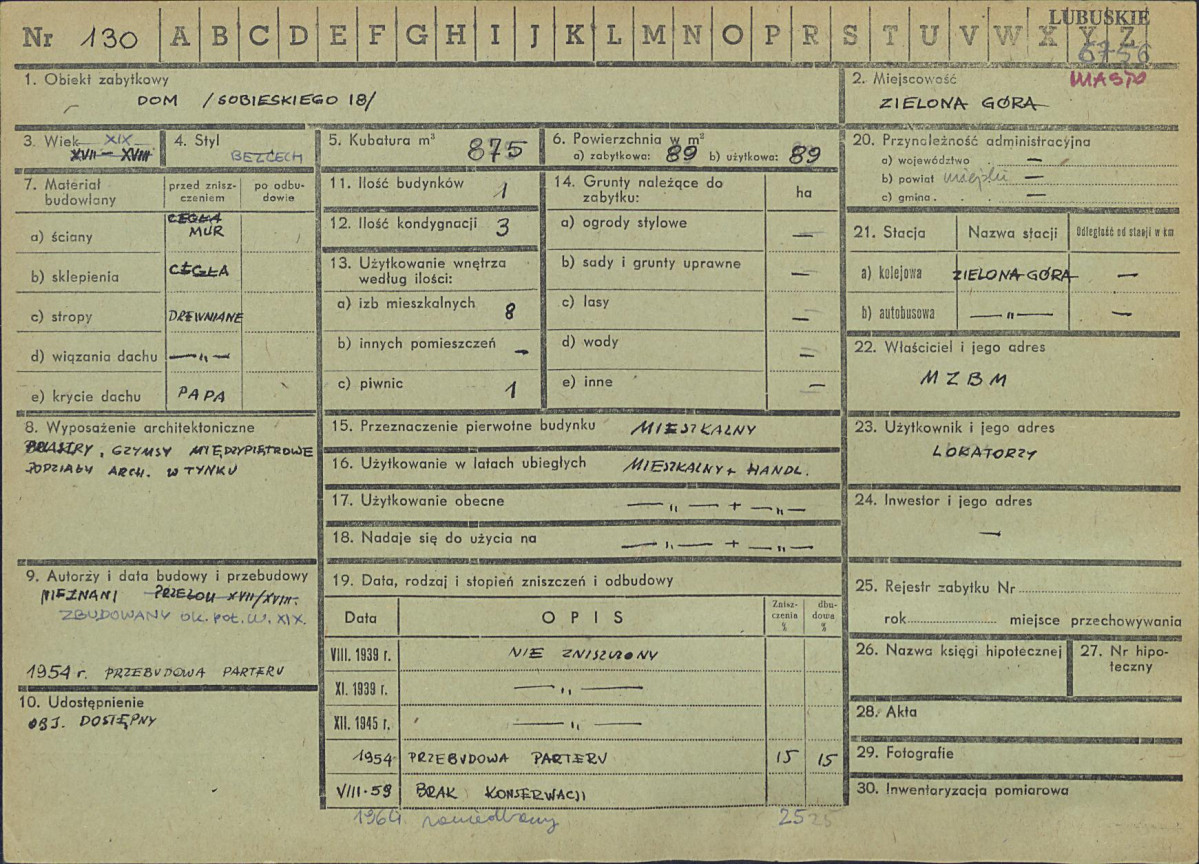 Nr 130 A B C D E F G H I J K L M N O P R S T U V W X Y Z
LUBUSKIE
6756
MIASTO
1. Obiekt zabytkowy
DOM /SOBIESKIEGO 18/
2. Miejscowość
ZIELONA GÓRA
3. Wiek XIX
XVII – XVIII
4. Styl
BEZCECH
5. Kubatura m³ 875
6. Powierzchnia w m²
a) zabytkowa: 89 b) użytkowa: 89
20. Przynależność administracyjna
a) województwo —
b) powiat miejski —
c) gmina —
7. Materiał budowlany
przed zniszczeniem
po odbudowie
a) ściany CEGŁA
MUR
b) sklepienia CEGŁA
c) stropy DREWNIANE
d) wiązania dachu —„—
e) krycie dachu PAPA
11. Ilość budynków 1
12. Ilość kondygnacji 3
13. Użytkowanie wnętrza
według ilości:
a) izb mieszkalnych 8
b) innych pomieszczeń –
c) piwnic 1
14. Grunty należące do
zabytku: ha
a) ogrody stylowe —
b) sady i grunty uprawne —
c) lasy —
d) wody —
e) inne —
21. Stacja Nazwa stacji Odległość od stacji w km
a) kolejowa ZIELONA GÓRA —
b) autobusowa —„— —
22. Właściciel i jego adres
MZBM
8. Wyposażenie architektoniczne
PILASTRY, GZYMSY MIĘDZYPIĘTROWE
PODZIAŁY ARCH. W TYNKU
15. Przeznaczenie pierwotne budynku MIESZKALNY
16. Użytkowanie w latach ubiegłych MIESZKALNY + HANDL.
17. Użytkowanie obecne —„— + —„—
18. Nadaje się do użycia na —„— + —„—
23. Użytkownik i jego adres
LOKATORZY
24. Inwestor i jego adres
—
9. Autorzy i data budowy i przebudowy
NIEZNANI PRZEŁOM XVII/XVIII.
ZBUDOWANY OK. POŁ. W. XIX.
1954 r. PRZEBUDOWA PARTERU
10. Udostępnienie
OBJ. DOSTĘPNY
19. Data, rodzaj i stopień zniszczeń i odbudowy
Data OPIS Zniszczenia % dbudowa %
VIII. 1939 r. NIE ZNISZCZONY
XI. 1939 r. —„—
XII. 1945 r. —„—
1954 PRZEBUDOWA PARTERU 15 15
VIII-59 BRAK KONSERWACJI
1964. zaniedbany 25 25
25. Rejestr zabytku Nr
rok miejsce przechowywania
26. Nazwa księgi hipotecznej
27. Nr hipoteczny
28. Akta
29. Fotografie
30. Inwentaryzacja pomiarowa